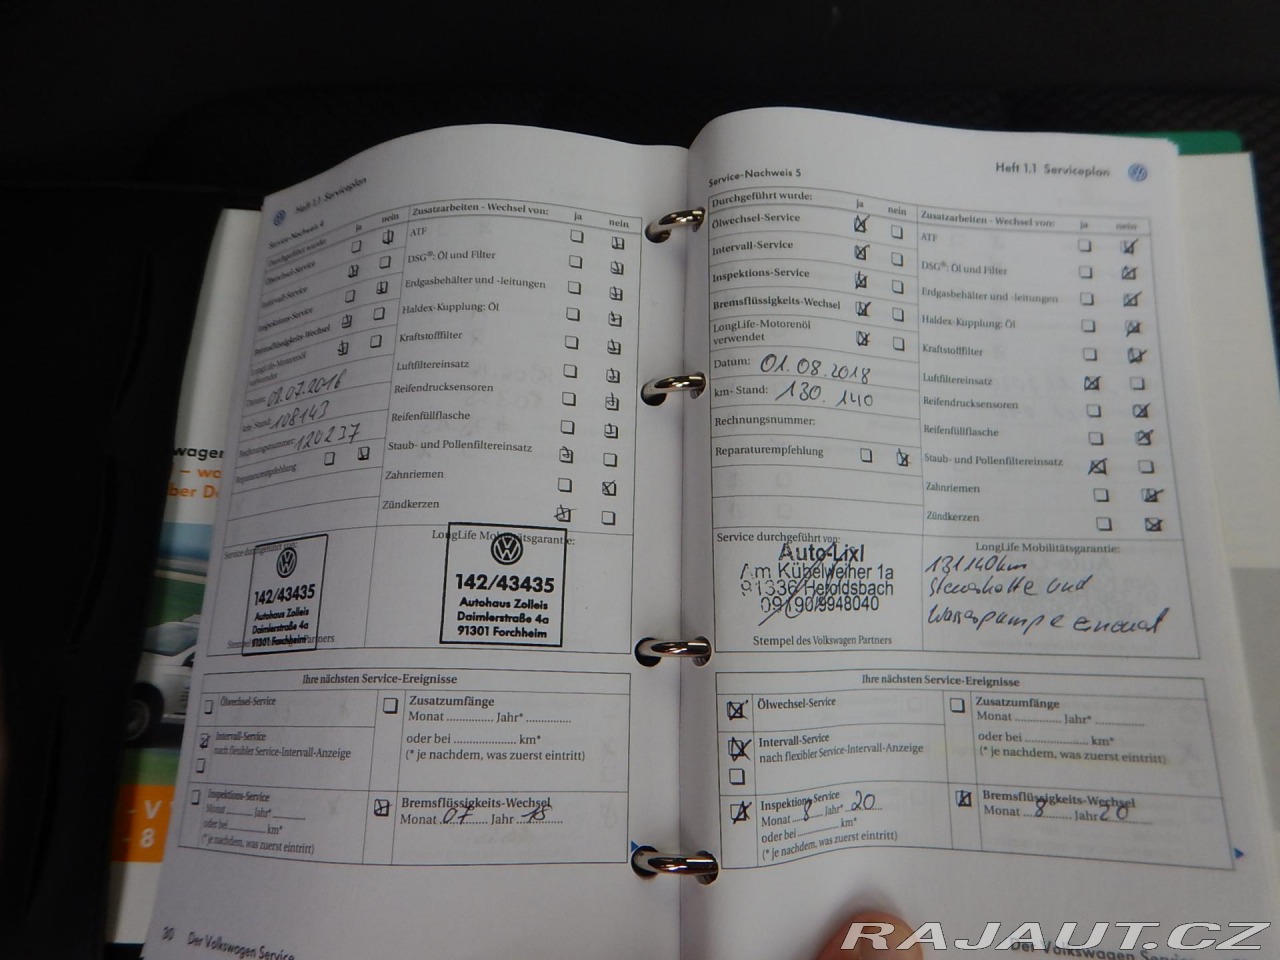 Heft 1.1 Serviceplan
Service-Nachweis 4
Durchgeführt wurde:
ja
nein
Ölwechsel-Service
Intervall-Service
Inspektions-Service
Bremsflüssigkeits-Wechsel
LongLife-Motorenöl
verwendet
Datum:
08.07.2016
km-Stand:
108143
Rechnungsnummer:
120237
Reparaturempfehlung
Zusatzarbeiten - Wechsel von:
ja
nein
ATF
DSG®: Öl und Filter
Erdgasbehälter und -leitungen
Haldex-Kupplung: Öl
Kraftstofffilter
Luftfiltereinsatz
Reifendrucksensoren
Reifenfüllflasche
Staub- und Pollenfiltereinsatz
Zahnriemen
Zündkerzen
Service durchgeführt von:
142/43435
Autohaus Zolleis
Daimlerstraße 4a
91301 Forchheim
LongLife Mobilitätsgarantie:
142/43435
Autohaus Zolleis
Daimlerstraße 4a
91301 Forchheim
Ihre nächsten Service-Ereignisse
Ölwechsel-Service
Intervall-Service
nach flexibler Service-Intervall-Anzeige
Inspektions-Service
Monat .......... Jahr* ..........
oder bei .......... km*
(* je nachdem, was zuerst eintritt)
Zusatzumfänge
Monat .............. Jahr* ..............
oder bei .................... km*
(* je nachdem, was zuerst eintritt)
Bremsflüssigkeits-Wechsel
Monat 07 Jahr 18
30 Der Volkswagen Service
Heft 1.1 Serviceplan
Service-Nachweis 5
Durchgeführt wurde:
ja
nein
Ölwechsel-Service
Intervall-Service
Inspektions-Service
Bremsflüssigkeits-Wechsel
LongLife-Motorenöl
verwendet
Datum: 01.08.2018
km-Stand: 130.140
Rechnungsnummer:
Reparaturempfehlung
Zusatzarbeiten - Wechsel von:
ja
nein
ATF
DSG®: Öl und Filter
Erdgasbehälter und -leitungen
Haldex-Kupplung: Öl
Kraftstofffilter
Luftfiltereinsatz
Reifendrucksensoren
Reifenfüllflasche
Staub- und Pollenfiltereinsatz
Zahnriemen
Zündkerzen
Service durchgeführt von:
Auto-Lixl
Am Kübelweiher 1a
91336 Heroldsbach
09190/9948040
Stempel des Volkswagen Partners
LongLife Mobilitätsgarantie:
131140km
Steuerkette und
Wasserpumpe erneuert
Ihre nächsten Service-Ereignisse
Ölwechsel-Service
Intervall-Service
nach flexibler Service-Intervall-Anzeige
Inspektions-Service
Monat 8 Jahr* 20
oder bei .............. km*
(* je nachdem, was zuerst eintritt)
Zusatzumfänge
Monat .............. Jahr* ..............
oder bei .................... km*
(* je nachdem, was zuerst eintritt)
Bremsflüssigkeits-Wechsel
Monat 8 Jahr 20
Der Volkswagen Service
RAJAUT.CZ